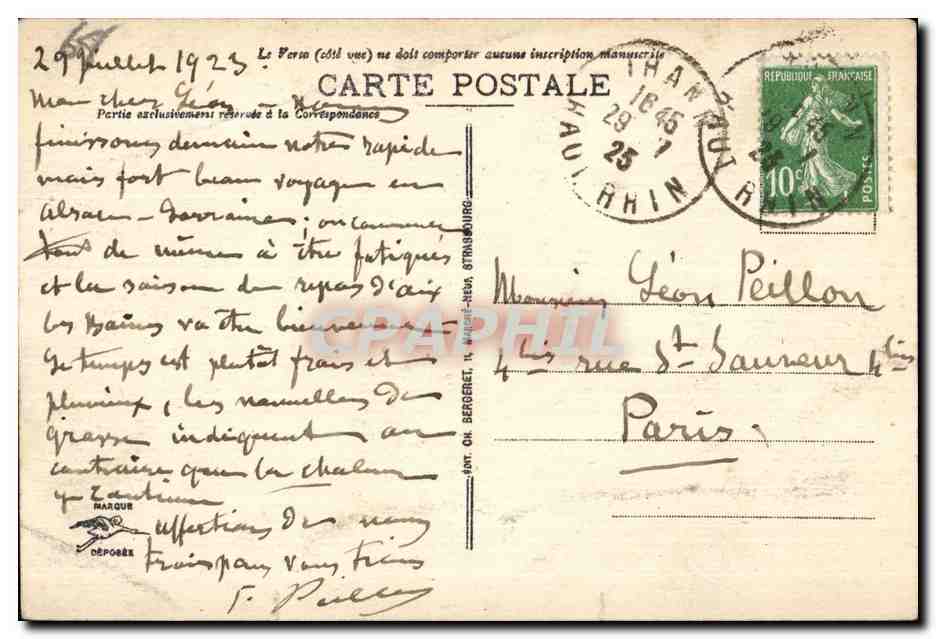 29 juillet 1923.
Le Verso (côté vue) ne doit comporter aucune inscription manuscrite
CARTE POSTALE
Partie exclusivement réservée à la Correspondance
Mon cher Léon – Nous
finissons demain notre rapide
mais fort beau voyage en
Alsace – Lorraine ; on commence
tous de même à être fatigués
et la saison de repos d'aix
les Bains va être bienvenue
Le temps est plutôt frais et
pluvieux, les nouvelles de
Grasse indiquent au
contraire que la chaleur
y continue
affections de nous
trois pour vous trois
T. Peillon
MARQUE
DÉPOSÉE
EDIT. CH. BERGERET, 11, MARCHÉ-NEUF, STRASBOURG
THANN
16 45
29 7
25
HAUT RHIN
REPUBLIQUE FRANÇAISE
10c
POSTES
Monsieur Léon Peillon
4bis rue St Sauveur 4bis
Paris.
CPAPHIL